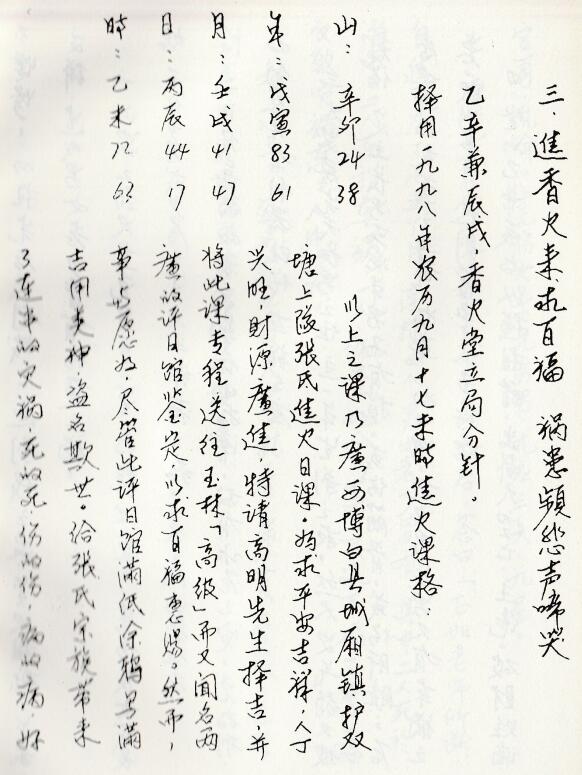 三．進香火来求百福 祸患频愁声啼哭
乙辛兼辰戌，香火堂立局分针。
择用一九九八年农历九月十七未时進火课格：
山：辛卯 24 38
年：戊寅 83 61
月：壬戌 41 47
日：丙辰 44 17
時：乙未 72 63
以上之课乃廣西博白县城厢镇护双
塘上队張氏進火日课。为求平安吉祥，人丁
兴旺，財源廣進，特请高明先生择吉，并
将此课专程送往玉林「高级」而又闻名两
廣的评日馆鉴定，以求百福惠賜。然而，
事与愿为，尽管此评日馆满纸涂鸦写满
吉用类神盗名欺世。给張氏宗族带来
了連串的灾祸，死的死，伤的伤，病的病，好